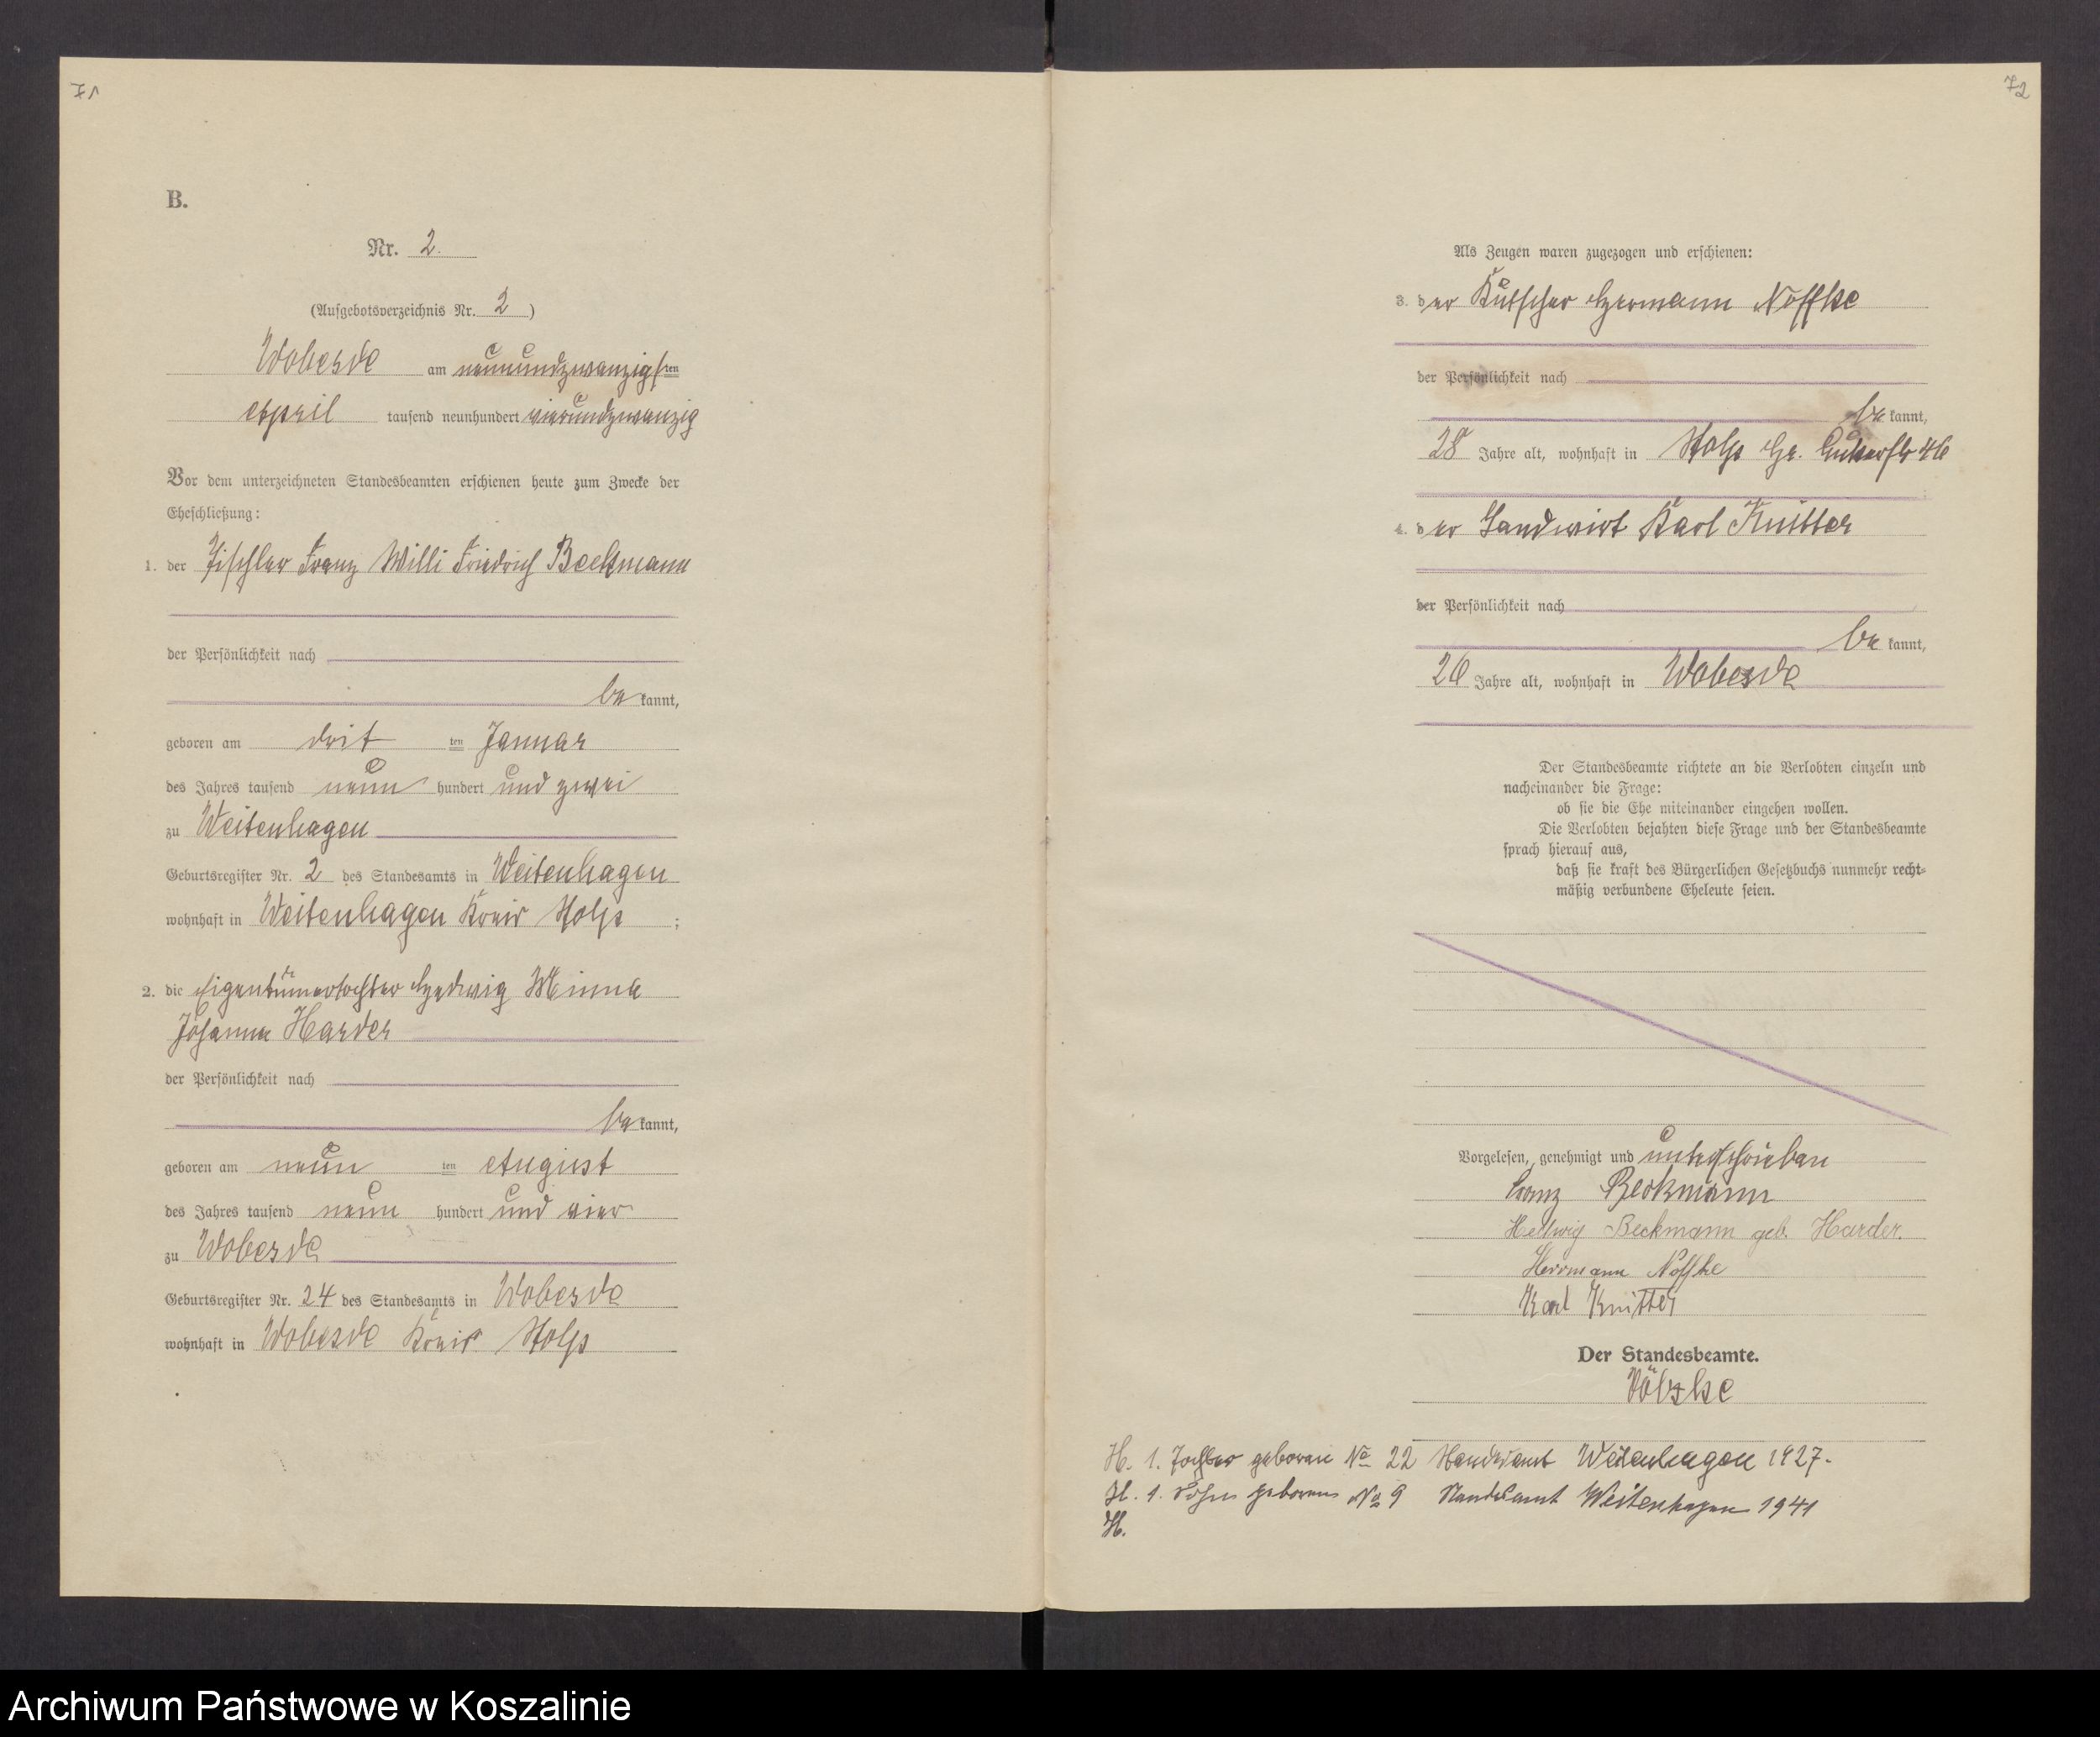 71
B.
Nr. 2.
(Aufgebotsverzeichnis Nr. 2)
Wobesde am neunundzwanzigsten
April tausend neunhundert vierundzwanzig
Vor dem unterzeichneten Standesbeamten erschienen heute zum Zwecke der
Eheschließung:
1. der Tischler Franz Willi Friedrich Beckmann
der Persönlichkeit nach
be kannt,
geboren am drit ten Januar
des Jahres tausend neun hundert und zwei
zu Weitenhagen
Geburtsregister Nr. 2 des Standesamts in Weitenhagen
wohnhaft in Weitenhagen Kreis Stolp ;
2. die Eigentümertochter Hedwig Minna
Johanna Harder
der Persönlichkeit nach
be kannt,
geboren am neun ten August
des Jahres tausend neun hundert und vier
zu Wobesde
Geburtsregister Nr. 24 des Standesamts in Wobesde
wohnhaft in Wobesde Kreis Stolp
72
Als Zeugen waren zugezogen und erschienen:
3. der Kutscher Hermann Noffke
der Persönlichkeit nach
be kannt,
28 Jahre alt, wohnhaft in Stolp Gr. 46
4. der Landwirt Karl Knitter
der Persönlichkeit nach
be kannt,
26 Jahre alt, wohnhaft in Wobesde
Der Standesbeamte richtete an die Verlobten einzeln und
nacheinander die Frage:
ob sie die Ehe miteinander eingehen wollen.
Die Verlobten bejahten diese Frage und der Standesbeamte
sprach hierauf aus,
daß sie kraft des Bürgerlichen Gesetzbuchs nunmehr recht-
mäßig verbundene Eheleute seien.
Vorgelesen, genehmigt und unterschrieben
Franz Beckmann
Hedwig Beckmann geb. Harder.
Herrmann Noffke
Karl Knitter
Der Standesbeamte.
Völzke
H. 1. Tochter geboren No 22 Standesamt Weitenhagen 1927.
H. 1. Sohn geboren No 9 Standesamt Weitenhagen 1941
H.
Archiwum Państwowe w Koszalinie